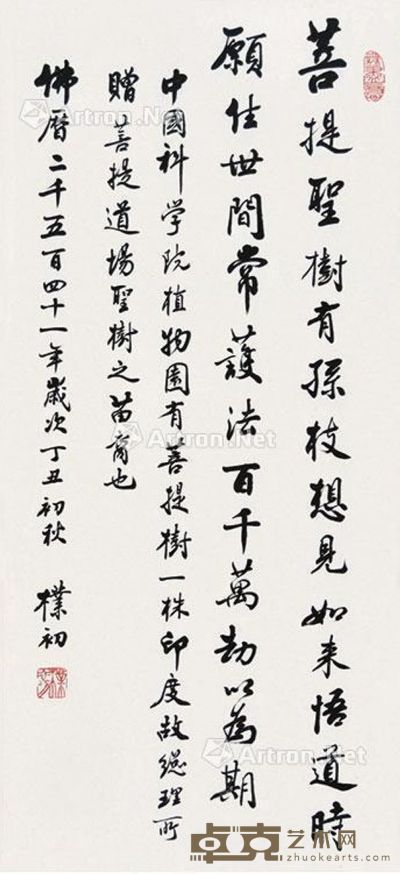 菩提聖樹有孫枝想見如来悟道時
願住世間常護法百千萬劫以為期
中國科学院植物園有菩提樹一株印度故總理所
贈菩提道場聖樹之苗裔也
佛曆二千五百四十一年歲次丁丑初秋 樸初
Artron.Net
Artron.Net
Artron.Net
Artron.Net
Artron.Net
Artron.Net
卓克艺术网
zhuokearts.com